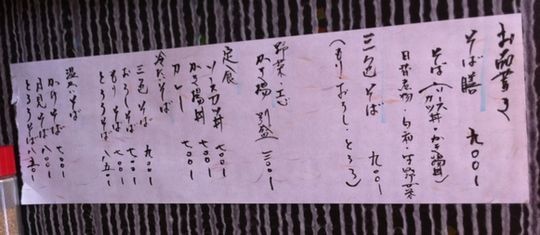 お品書き
そば膳 九〇〇
そば(ソースカツ丼・かき揚丼)
日替煮物・旬彩・生野菜
三色そば 九〇〇
(もり・おろし・とろろ)
野菜・えび
かき揚 別盛 三〇〇
定食
ソースカツ丼 七〇〇
かき揚丼 七〇〇
カレー 七〇〇
冷たいそば
三色そば 九〇〇
おろしそば 七〇〇
もりそば 七〇〇
とろろそば 八五〇
温かいそば
かけそば 七〇〇
月見そば 八〇〇
とろろそば 八五〇